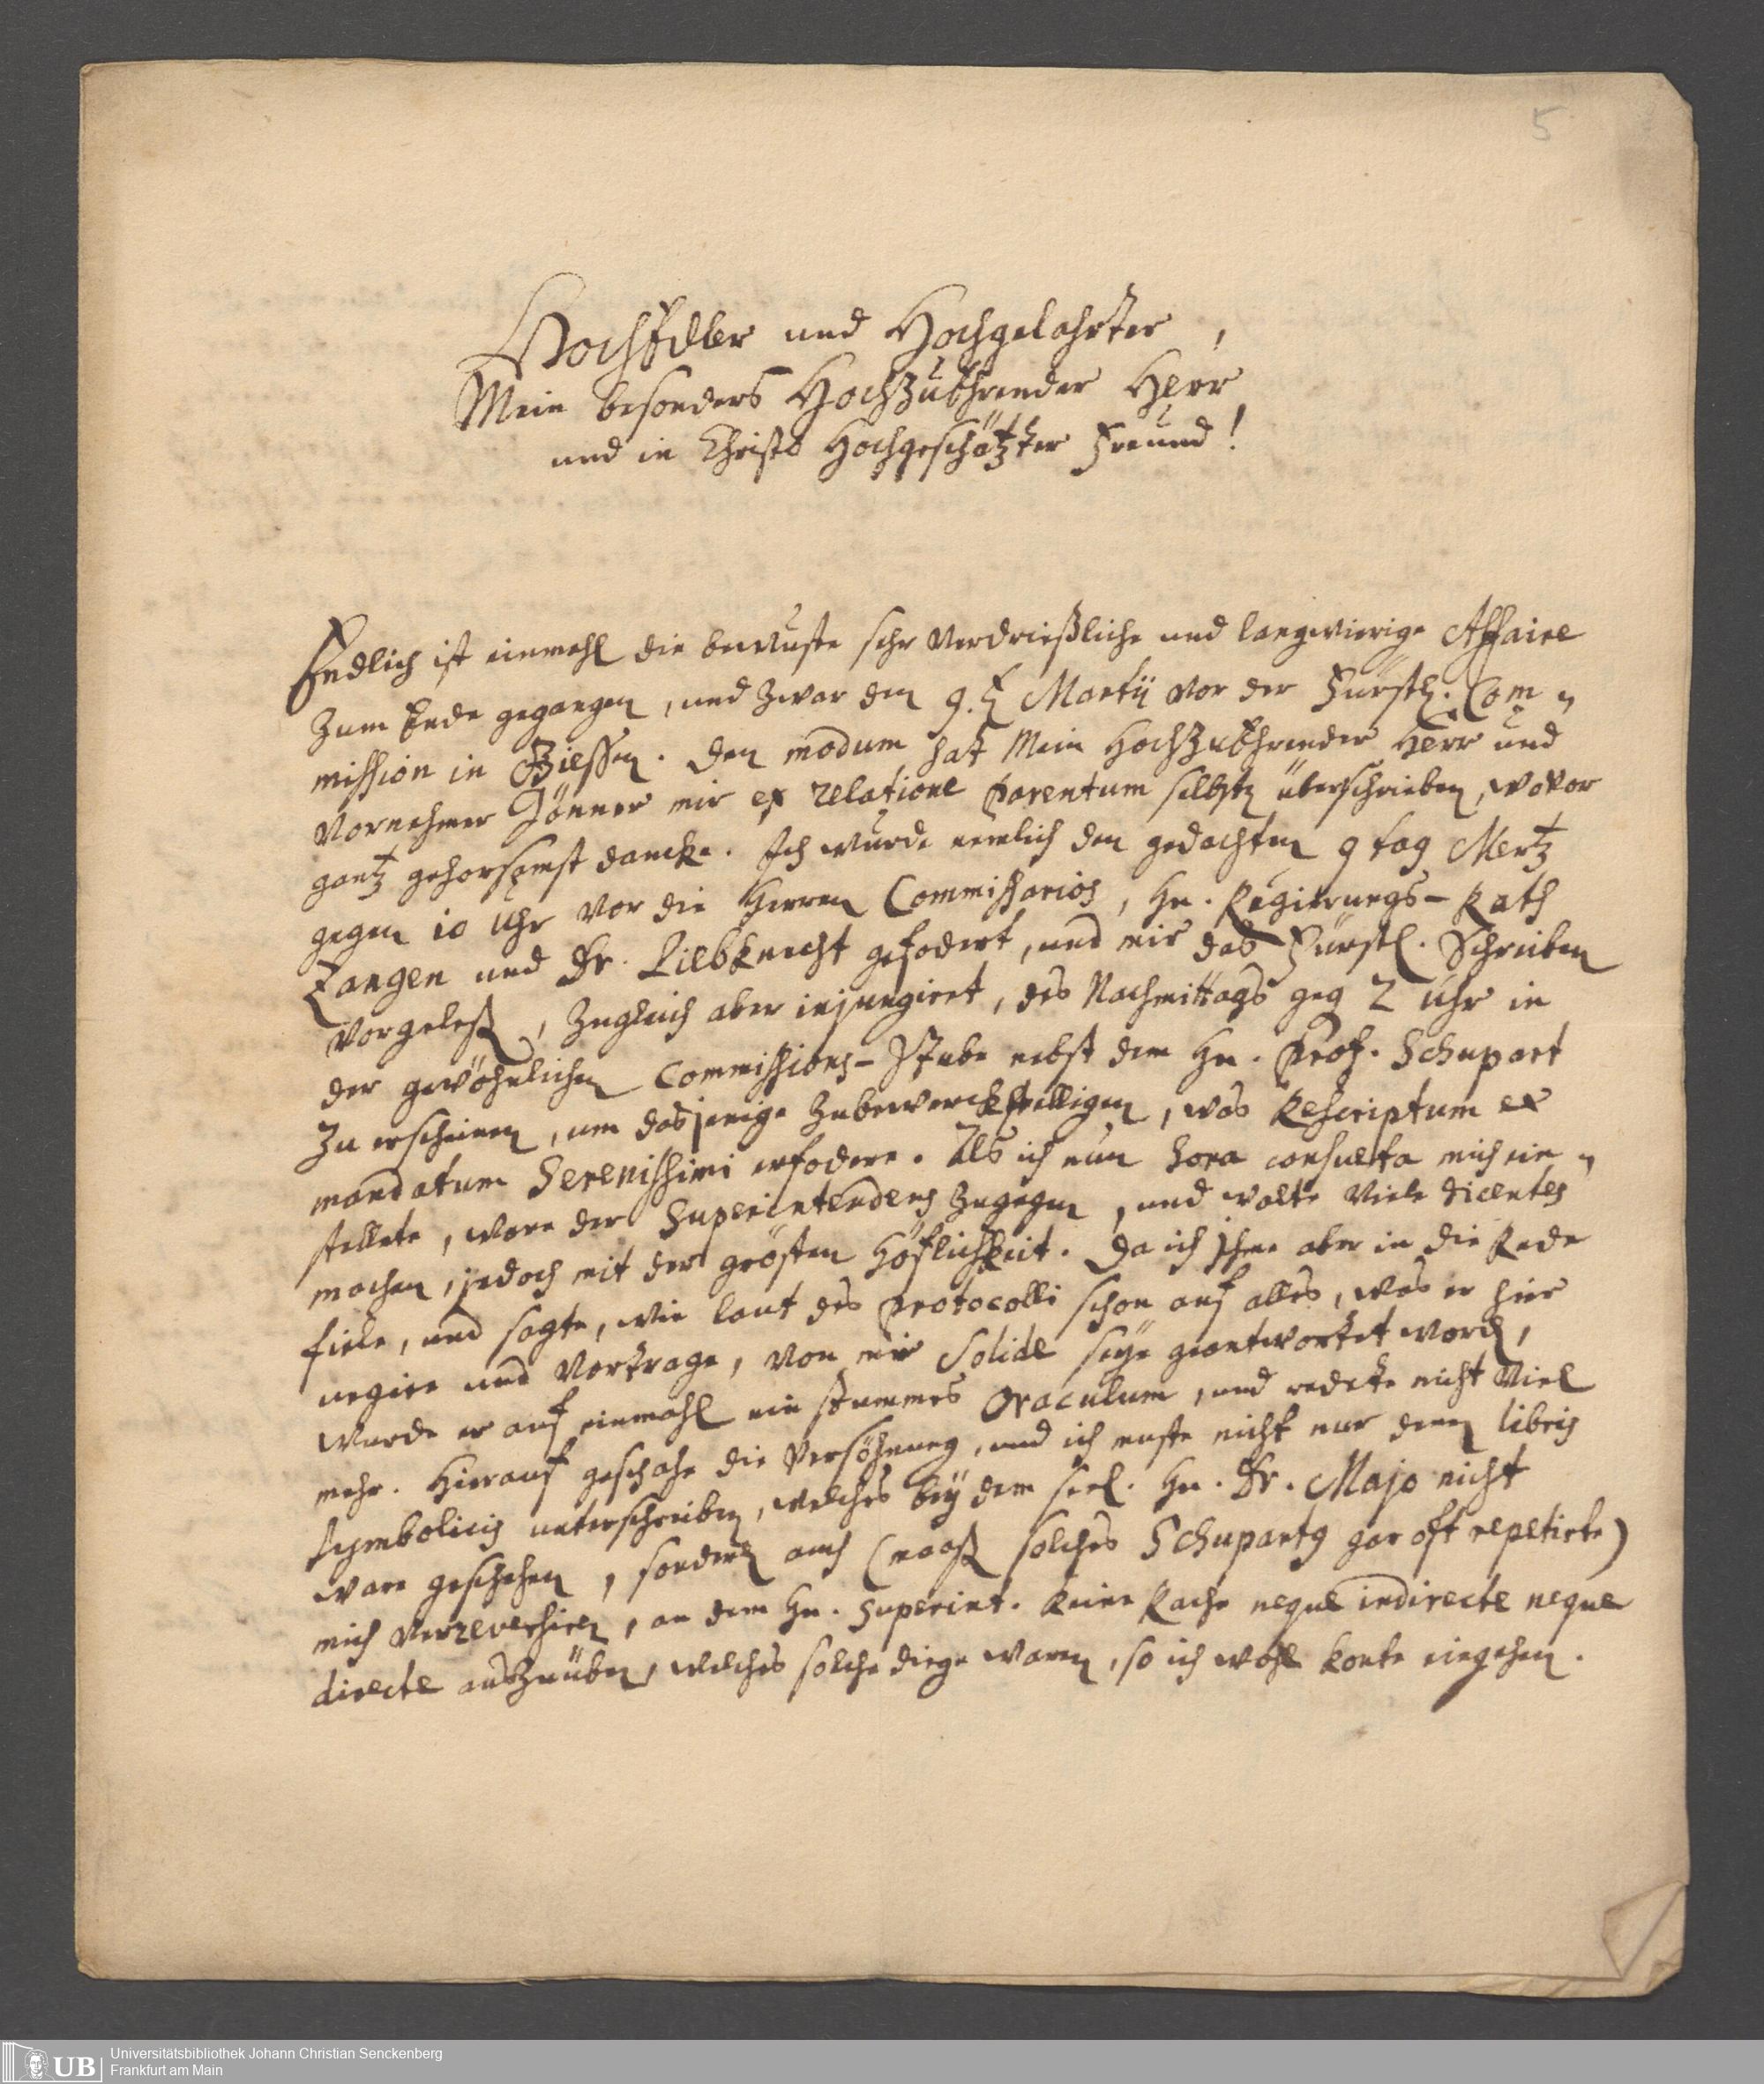 5
HochEdler und Hochgelahrter,
Mein besonders HochzuEhrender Herr
und in Christo Hochgeschätzter Freund!
Endlich ist einmahl die bewuste sehr verdrießliche und langwierige Affaire
zum Ende gegangen, und zwar den 9. Martij vor der Fürstl. Com
mission in Giessen. Den modum hat Mein HochzuEhrender Herr und
Vornehmer Gönner mir ex relatione parentum selbsten überschrieben, wovor
gantz gehorsamst dancke. Ich wurde nemlich den gedachten 9 tag Mertz
gegen 10 Uhr vor die Herren Commissarios, Hn. Regierungs-Rath
Langen und Dr. Liebknecht gefodert, und mir das Fürstl. Schreiben
vorgelesen, zugleich aber injungiret, des Nachmittags geg 2 Uhr in
der gewöhnlichen Commissions-Stube nebst dem Hn. Prof. Schupart
zu erscheinen, um dasjenige zubewerckstelligen, was Rescriptum et
mandatum Serenissimi erfodere. Als ich nun hora consueta mich ein
stellete, ware der Superintendens zugegen, und wolte viele dicentes
machen, jedoch mit der grösten Höflichkeit. Da ich ihme aber in die Rede
fiele, und sagte, wie laut des protocolli schon auf alles, was er hier
negire und vortrage, von mir solide seye geantwortet worden,
wurde er auf einmahl ein stummes Oraculum, und redete nicht viel
mehr. Hierauf geschahe die Versöhnung, und ich muste nicht nur denen libris
symbolicis unterschreiben, welches bey dem seel. Hn. Dr. Majo nicht
ware geschehen, sondern auch (maaßen solches Schupartg gar oft repetirte)
mich verreversiren, an dem Hn. Superint. keine Rache neque indirecte neque
directe auszuüben, welches solche dinge waren, so ich wohl konte eingehen.
UB
Universitätsbibliothek Johann Christian Senckenberg
Frankfurt am Main